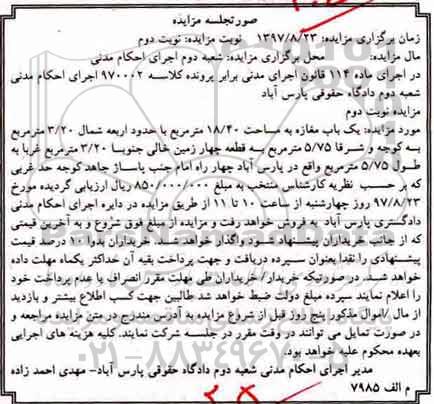 صورتجلسه مزایده
زمان برگزاری مزایده: ۱۳۹۷/۸/۲۳ نوبت مزایده: نوبت دوم
مال مزایده: محل برگزاری مزایده: شعبه دوم اجرای احکام مدنی
در اجرای ماده ۱۱۴ قانون اجرای مدنی برابر پرونده کلاسه ۹۷۰۰۰۲ اجرای احکام مدنی
شعبه دوم دادگاه حقوقی پارس آباد
مزایده نوبت دوم
مورد مزایده: یک باب مغازه به مساحت ۱۸/۴۰ مترمربع با حدود اربعه شمال ۳/۲۰ مترمربع
به کوچه و شرقا ۵/۷۵ مترمربع به قطعه چهار زمین خالی جنوبا ۳/۲۰ مترمربع غربا به
طول ۵/۷۵ مترمربع واقع در پارس آباد چهار راه امام جنب پاساژ جاهد کوچه حد غربی
که بر حسب نظریه کارشناس منتخب به مبلغ ۸۵۰/۰۰۰/۰۰۰ ریال ارزیابی گردیده مورخ
۹۷/۸/۲۳ روز چهارشنبه از ساعت ۱۰ تا ۱۱ از طریق مزایده در دایره اجرای احکام مدنی
دادگستری پارس آباد به فروش خواهد رفت و مزایده از مبلغ فوق شروع و به آخرین قیمتی
که از جانب خریداران پیشنهاد شود واگذار خواهد شد. خریداران بدوا ۱۰ درصد قیمت
پیشنهادی را نقدا بعنوان سپرده دریافت و جهت پرداخت بقیه آن حداکثر یکماه مهلت داده
خواهد شد. در صورتیکه خریدار/خریداران طی مهلت مقرر انصراف یا عدم پرداخت خود
را اعلام نمایند سپرده مبلغ دولت ضبط خواهد شد طالبین جهت کسب اطلاع بیشتر و بازدید
از مال /اموال مذکور پنج روز قبل از شروع مزایده به آدرس مندرج در متن مزایده مراجعه و
در صورت تمایل می توانند در وقت مقرر در جلسه شرکت نمایند. کلیه هزینه های اجرایی
بعهده محکوم علیه خواهد بود.
مدیر اجرای احکام مدنی شعبه دوم دادگاه حقوقی پارس آباد- مهدی احمد زاده
م الف ۷۹۸۵